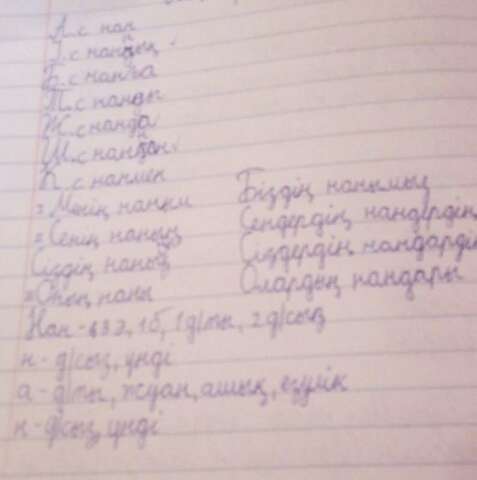 А.с нан
І.с нанның
Б.с нанға
Т.с нанды
Ж.с нанда
Ш.с наннан
К.с нанмен
= Менің наным
Біздің нанымыз
= Сенің наның
Сендердің нандердің
Сіздің наныз
Сіздердің нандардің
= Оның наны
Олардың нандары
Нан - 3 ә, 1 б, 1 д/ты, 2 д/сыз
н - д/сыз, үнді
а - д/ты, жуан, ашық, езулік
н - д/сыз, үнді